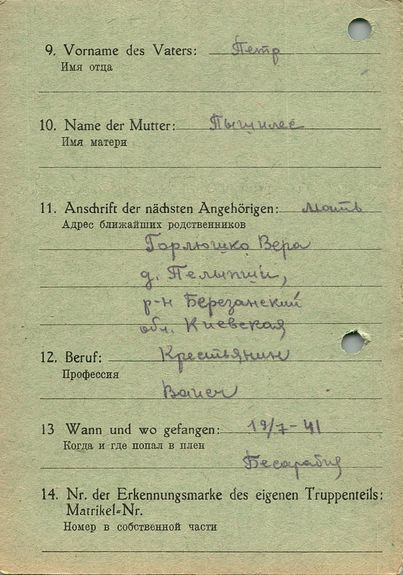 9. Vorname des Vaters: Петр
Имя отца
10. Name der Mutter:
Имя матери
11. Anschrift der nächsten Angehörigen: мать
Адрес ближайших родственников
Горлюшко Вера
д. Пелипщи,
р-н Березанский
обл. Киевская
12. Beruf: Крестьянин
Профессия
Bauer
13 Wann und wo gefangen: 19/7-41
Когда и где попал в плен
Бесарабия
14. Nr. der Erkennungsmarke des eigenen Truppenteils:
Matrikel=Nr.
Номер в собственной части